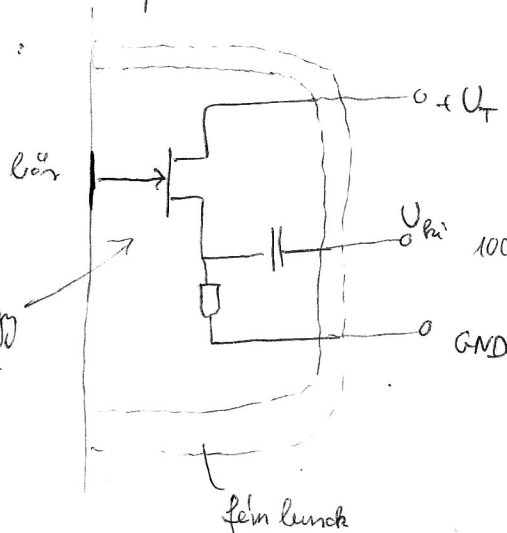 + U_T
bőr
U_ki 100
GND
fém burok